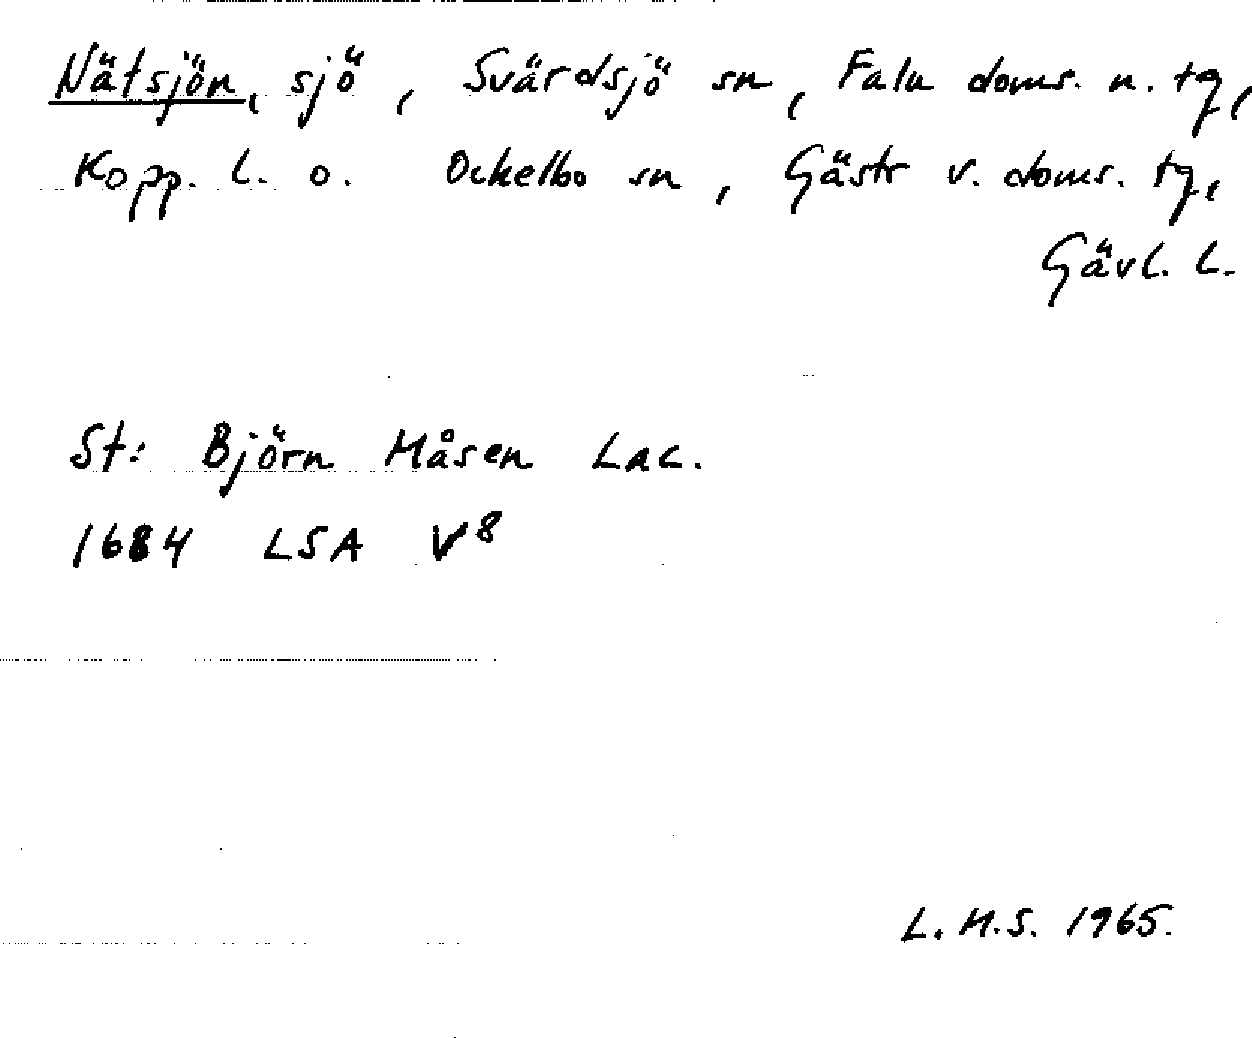 Nätsjön, sjö, Svärdsjö sn, Falu doms. n. tg,
Kopp. l. o. Ockelbo sn, Gästr v. doms. tg,
Gävl. l.
St: Björn Måsen Lac.
1684 LSA V⁸
L. H.S. 1965.